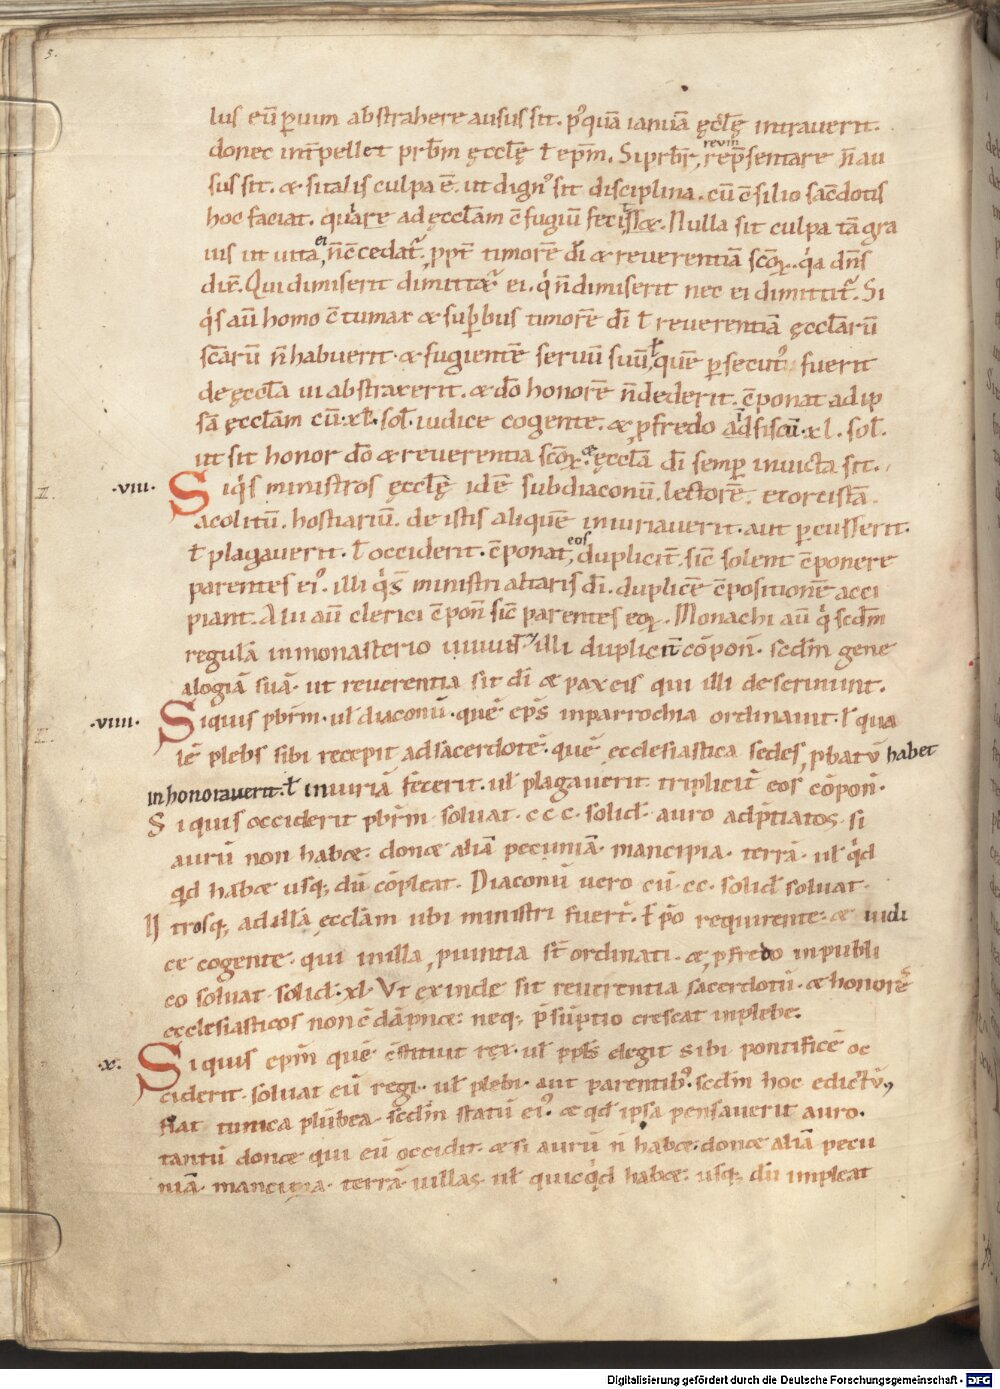 5.
lus eū ꝑ uim abstrahere ausus sit. p᷒quā ianuā ęcl̄ę intrauerit.
donec int̄pellet prb̄m ęccl̄ę ł ep̄m. Si prb̄r, rep̄sentare n̄ au
reum
sus sit. & si talis culpa ē. ut dign᷒ sit disciplina. cū c̄silio sac̄dotis
hoc faciat. quare ad ęccl̄am c̄fugiū fecisset. Nulla sit culpa tā gra
uis ut uita, n̄ c̄cedat᷑, ppt̄ timorē dī & reuerentiā sc̄oꝝ. q̇a dn̄s
ei
dix̄. Qui dimiserit dimittet᷑ ei. q̇ n̄ dimiserit nec ei dimittit᷑. Si
q̇s aū homo c̄tumax & supbus timorē dī ł reuerentiā ęccl̄arū
sc̄arū n̄ habuerit. & fugientē seruū suū, quē ꝑsecut᷒ fuerit
de ęccl̄a ui abstraxerit. & dō honorē n̄ dederit. c̄ponat ad ip
sā ęccl̄am cū .xl. sol. iudice cogente. & ꝓ fredo ad fiscū .xl. sol.
ut sit honor dō & reuerentia sc̄oꝝ. & ęccl̄a dī semp̱ inuicta sit.
.viii. Si q̇s ministros ęccl̄ę idē subdiaconū. lectorē. exorcistā.
acolitū. hostiariū. de istis aliquē iniuriauerit. aut ꝑcusserit.
ł plagauerit. ł occiderit. c̄ponat, duplicit̄. sic̄ solent c̄ponere
eos
parentes ei᷒. illi q̇s ministri altaris dī. duplicē c̄positionē acci
piant. Alii aū clerici c̄pon̄ sic̄ parentes eoꝝ. Monachi aū q̇ scd̄m
regulā in monasterio uiuuṫ illi duplicit̄ cōpon̄. scd̄m gene
alogiā suā. ut reuerentia sit dī & pax eis qui illi deseruiunt.
.viiii. Si quis pbrm̄. uł diaconū. quē ep̄s in parrochia ordinauit. ł qua
lē plebs sibi recepit ad sacerdotē. quē ecclesiastica sedes ꝓbatū habet
inhonorauerit. ł iniuriā fecerit. uł plagauerit. triplicit̄ eos cōpon̄.
Si quis occiderit pbrm̄ soluat. ccc. solid. auro adp̄tiatos. si
aurū non habet. donet aliā pecuniā. mancipia. terrā. uł q̇d
qd habet usq; dū cōpleat. Diaconū uero cū .cc. solid. soluat.
II trosq; ad illā ęccl̄am ubi ministri fuer̄. Ep̄o requirente. & iudi
ce cogente. qui in illa ꝓuintia st̄ ordinati. & ꝓ fredo in publi
co soluat solid. xl. Vt exinde sit reuerentia sacerdotū. & honorē
ecclesiasticos non c̄dāpnet. neq; p̄sūptio crescat in plebe.
.x. Si quis ep̄m quē c̄stituit rex. uł ppl̄s elegit sibi pontificē oc
ciderit. soluat eū regi. uł plebi. aut parentib᷒. scd̄m hoc edictū,
fiat tunica plūbea. scd̄m statū ei᷒. & qd̄ ipsa pensauerit auro.
tantū donet qui eū occidit. & si aurū n̄ habet. donet aliā pecu
niā. mancipia. terrā. uillas. uł quicq̇d habet. usq; dū impleat
Digitalisierung gefördert durch die Deutsche Forschungsgemeinschaft - DFG